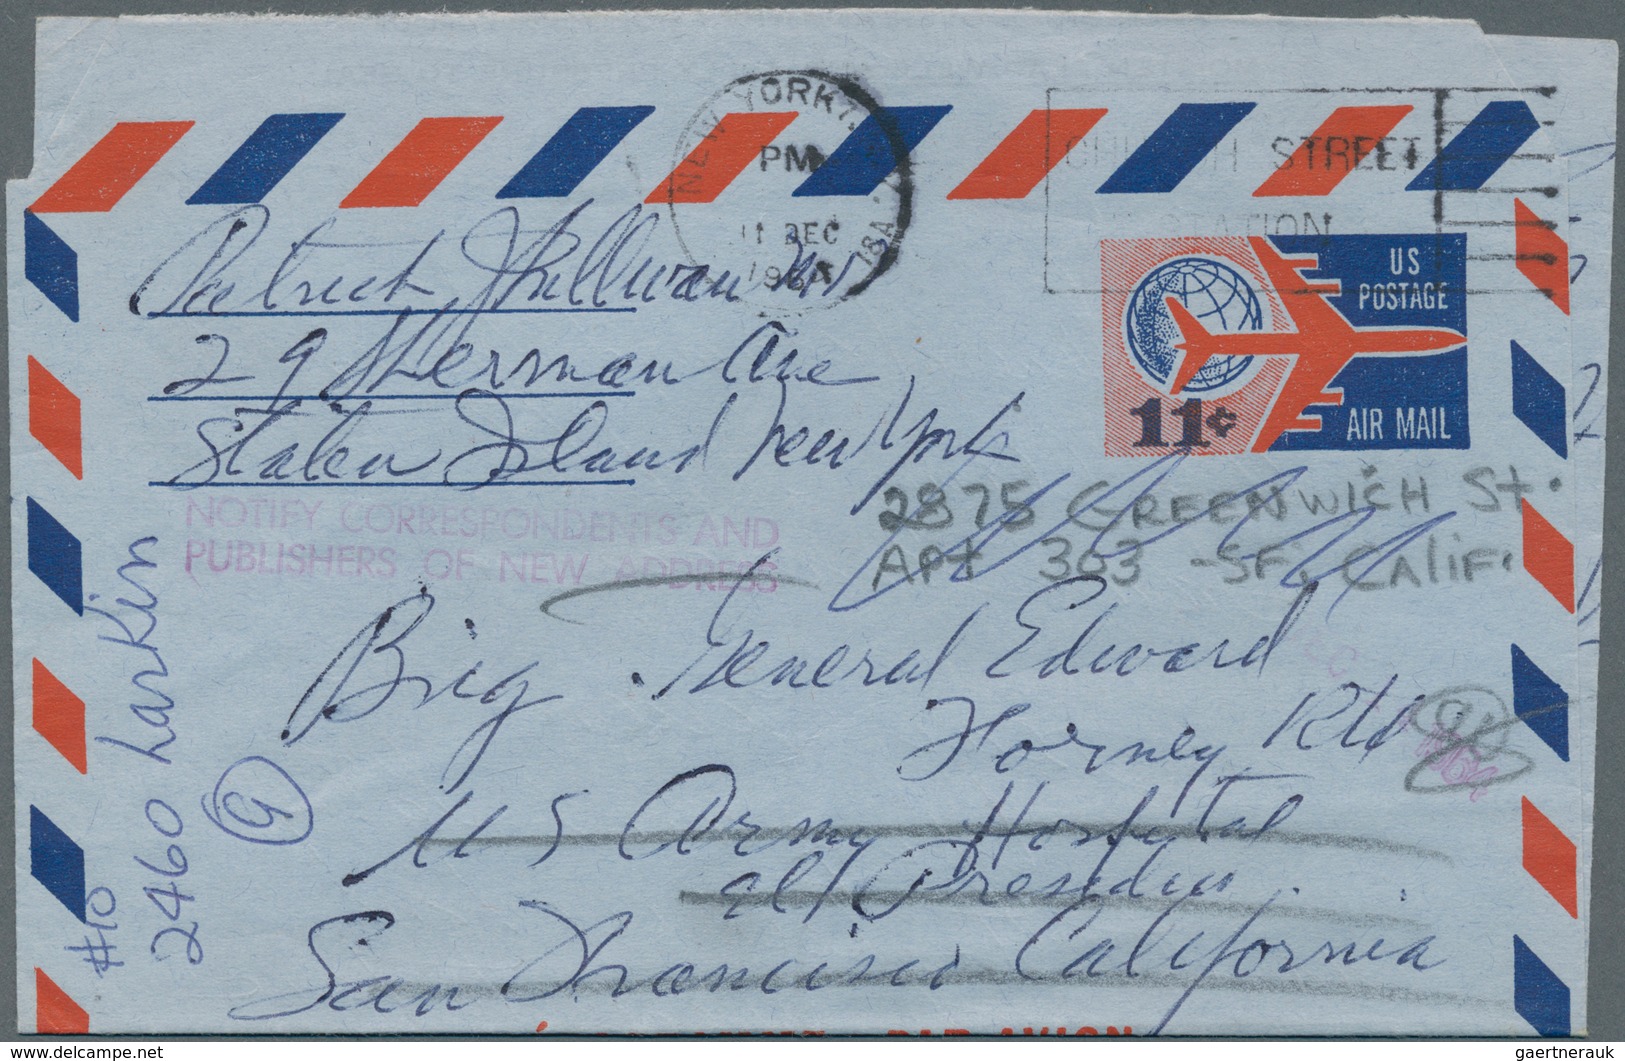 NEW YORK
PM
11 DEC
1964
18A
CHURCH STREET
STATION
US
POSTAGE
11¢
AIR MAIL
Patrick Sullivan
29 Sherman Ave
Staten Island New York
NOTIFY CORRESPONDENTS AND
PUBLISHERS OF NEW ADDRESS
2875 GREENWICH St.
APt 303 -SF. CALIF.
Brig General Edward
Forney Rtd
US Army Hospital
at Presidio
San Francisco California
#10
2460 Larkin
9
PAR AVION
gaertnerauk